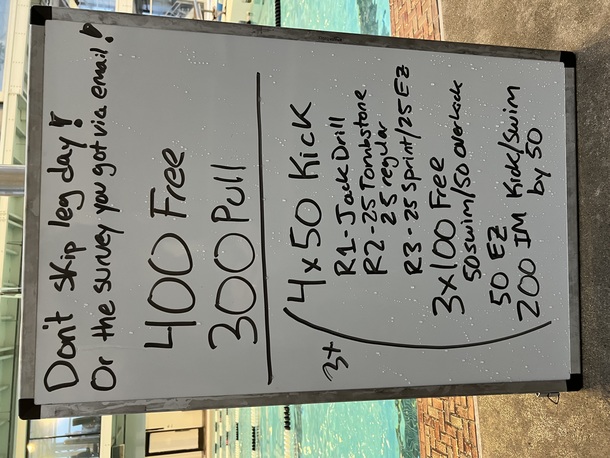 Don't skip leg day!
Or the survey you got via email!
400 Free
300 Pull
3+
4x50 Kick
R1-Jack Drill
R2-25 Tombstone
25 regular
R3-25 Sprint/25 EZ
3x100 Free
50 swim/50 overkick
50 EZ
200 IM Kick/Swim
by 50